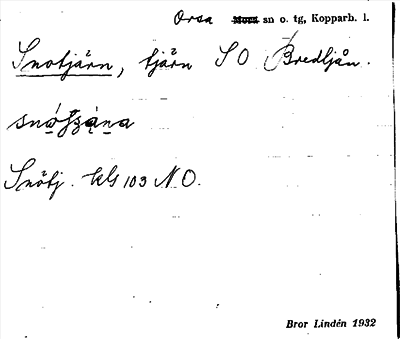 Orsa Mora sn o. tg, Kopparb. l.
Snotjärn, tjärn SO Bredtjån.
Snötj. kls 103 NO.
Bror Lindén 1932